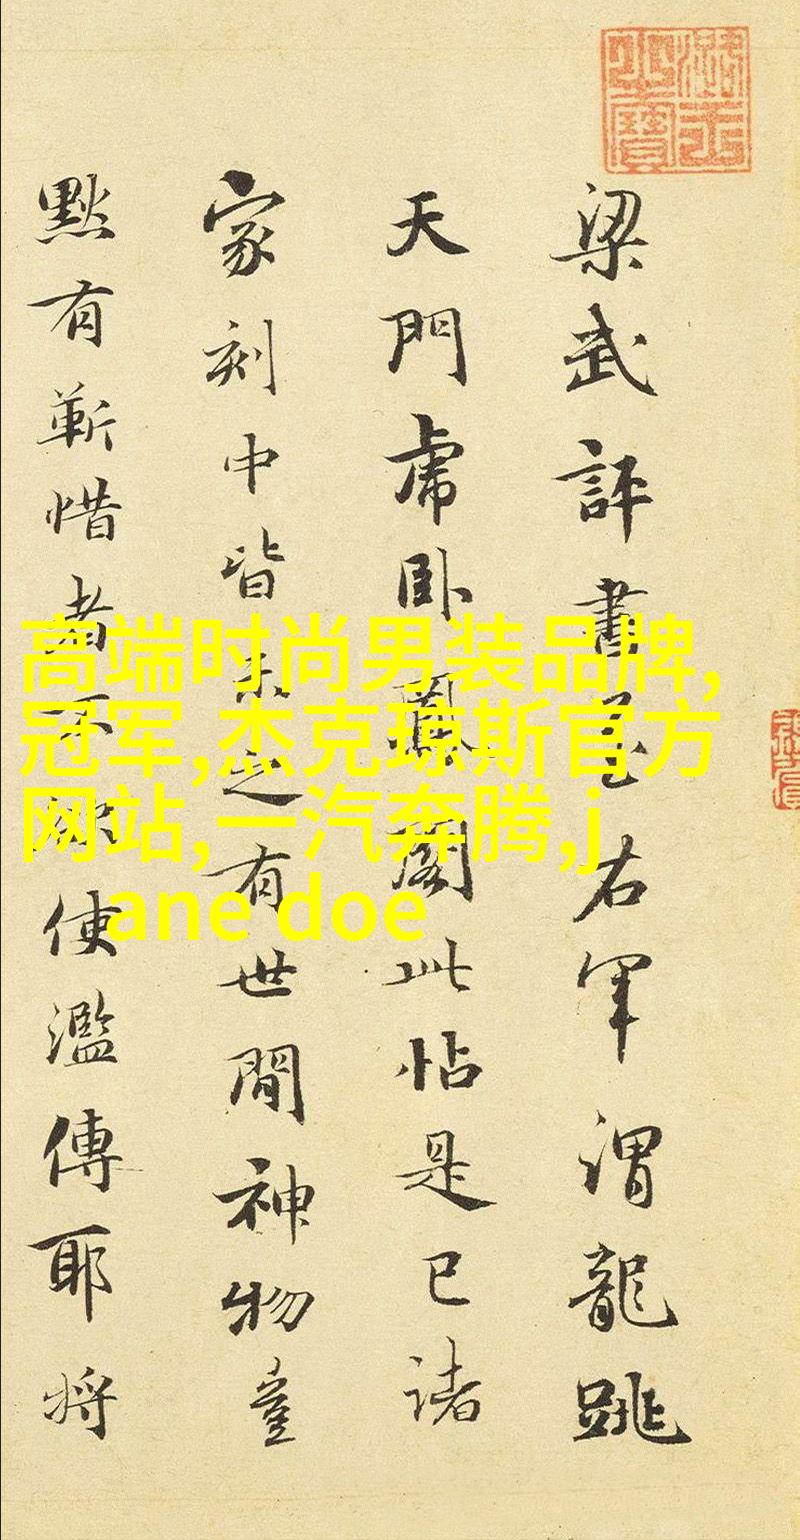 梁武評書至右軍謂龍跳
天門虎卧鳳閣此帖是已諸
家刻中皆未之有世間神物豈
黙有靳惜者不欲使濫傳耶將
高端时尚男装品牌,
冠军,杰克琼斯官方
网站,一汽奔腾,j
ane doe